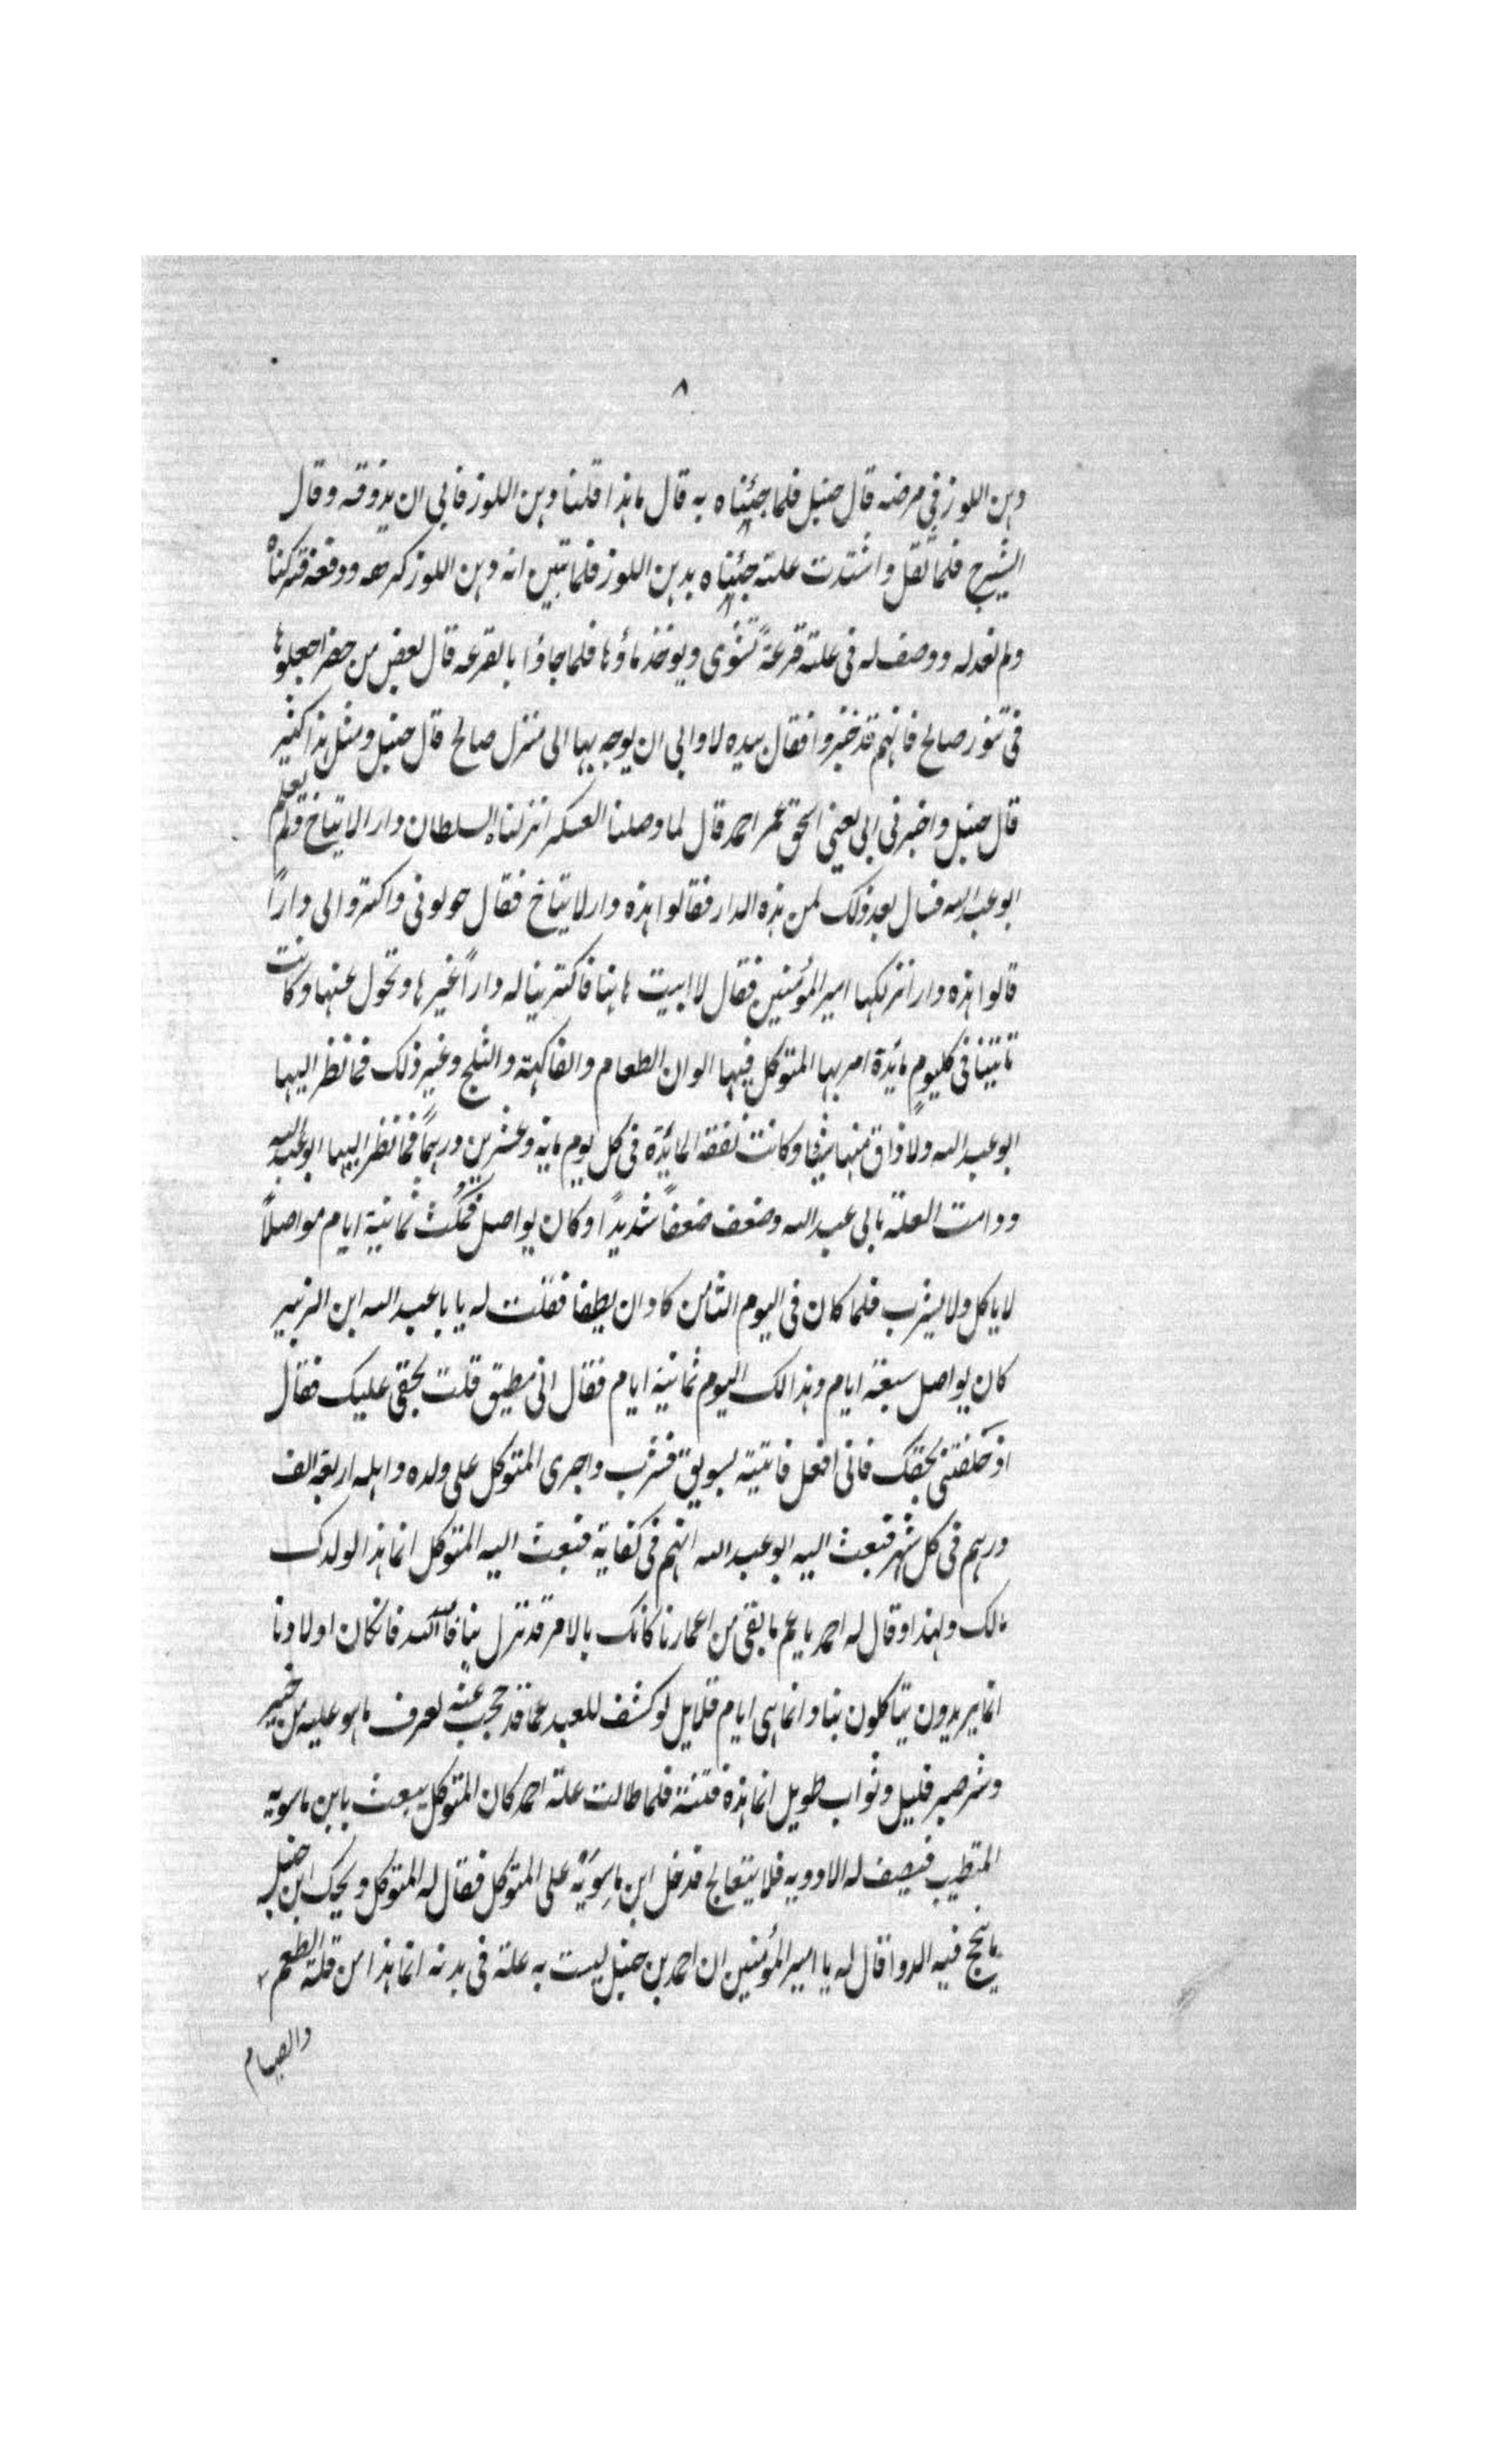 ٨
دهن اللوز في مرضه قال حنبل فلما جئناه به قال ما هذا قلنا دهن اللوز فابى ان يذوقه وقال
الشيرج فلما ثقل واشتدت علته جئناه بدهن اللوز فلما تبين انه دهن اللوز كرهه ودفعه فتركناه
ولم نعد له ووصف له في علته قرعةً تشوى ويوخذ ماؤها فلما جاؤا بالقرعه قال بعض من حضر اجعلوها
في تنور صالح فانهم قد خبزوا فقال بيده لا وابى ان يوجه بها الى منزل صالح قال حنبل ومثل هذا كثير
قال حنبل واخبرنى ابى يعنى اسحق عم احمد قال لما وصلنا العسكر انزلنا السلطان دار الايتاخ ولم يعلم
ابو عبد الله فسال بعد ذلك لمن هذه الدار فقالوا هذه دار لايتاخ فقال حولونى واكتروا لى دارًا
قالوا هذه دار انزلكها امير المؤمنين فقال لا ابيت هاهنا فاكترينا له دارًا غيرها وتحول عنها وكانت
تاتينا في كليوم مائدة امر بها المتوكل فيها الوان الطعام والفاكهة والثلج وغير ذلك فما نظر اليها
ابو عبد الله ولا ذاق منها شيئا وكانت نفقه المائدة في كل يوم مايه وعشرين درهمًا فما نظر اليها ابو عبد الله
ودامت العلة بابى عبد الله وضعف ضعفًا شديدًا وكان يواصل فمكث ثمانية ايام مواصلًا
لا ياكل ولا يشرب فلما كان في اليوم الثامن كاد ان يطفا فقلت له يا با عبد الله ابن الزبير
كان يواصل سبعة ايام وهذا لك اليوم ثمانية ايام فقال انى مطيق قلت بحقى عليك فقال
اذ حلفتنى بحقك فانى افعل فاتيته بسويق فشرب واجرى المتوكل على ولده واهله اربعة الف
درهم في كل شهر فبعث اليه ابو عبد الله انهم في كفاية فبعث اليه المتوكل انما هذا لولدك
مالك ولهذا وقال له احمد يا عم ما بقى من اعمارنا كانك بالامر قد نزل بنا فالله الله فانكان اولادنا
انما يريدون يتاكلون بنا وانما هى ايام قلايل لو كشف للعبد عما قد حجب عنه لعرف ما هو عليه من خير
وشر صبر قليل وثواب طويل انما هذه فتنة فلما طالت علة احمد كان المتوكل يبعث بابن ماسويه
المتطبب فيصف له الادويه فلا يتعالج فدخل ابن ماسويه على المتوكل فقال له المتوكل ويحك ابن حنبل
ما نجح فيه الدوا قال له يا امير المؤمنين ان احمد بن حنبل ليست به علة في بدنه انما هذا من قلة الطعم
والصيام